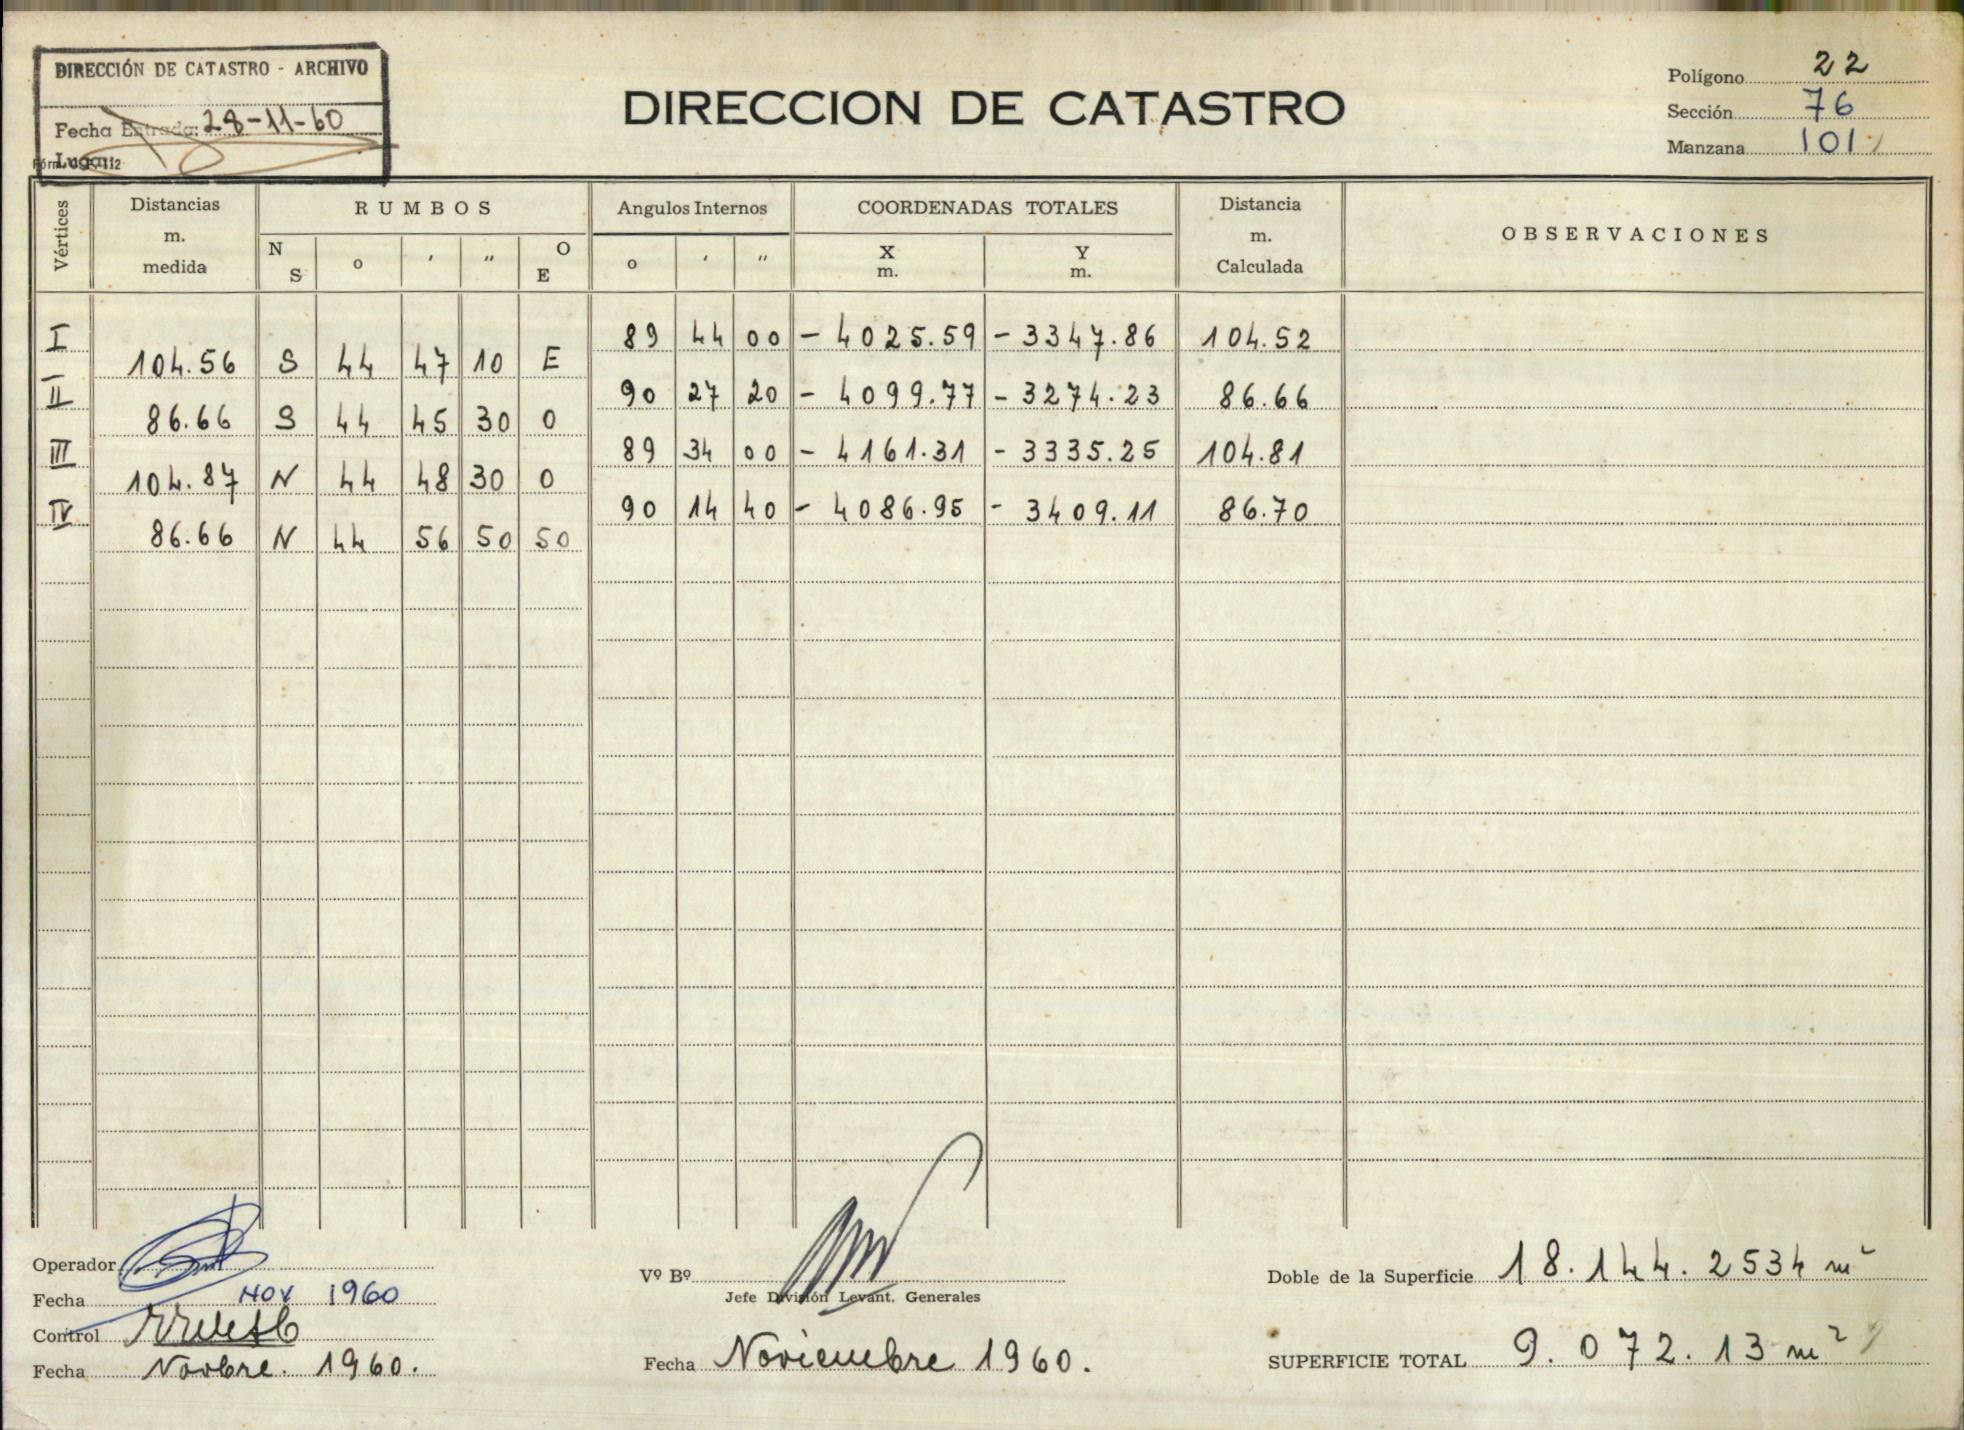 DIRECCIÓN DE CATASTRO - ARCHIVO
Fecha Entrada: 28-11-60
Lugar:
DIRECCION DE CATASTRO
Polígono 22
Sección 76
Manzana 101
Vértices Distancias m. medida RUMBOS Angulos Internos COORDENADAS TOTALES Distancia m. Calculada OBSERVACIONES
N S o ′ ″ O E o ′ ″ X m. Y m.
I 89 44 00 - 4025.59 - 3347.86 104.52
104.56 S 44 47 10 E
II 90 27 20 - 4099.77 - 3274.23 86.66
86.66 S 44 45 30 O
III 89 34 00 - 4161.31 - 3335.25 104.81
104.87 N 44 48 30 O
IV 90 14 40 - 4086.95 - 3409.11 86.70
86.66 N 44 56 50 50
Operador
Fecha NOV 1960
Control
Fecha Novbre. 1960.
Vº Bº
Jefe División Levant. Generales
Fecha Noviembre 1960.
Doble de la Superficie 18.144.2534 m²
SUPERFICIE TOTAL 9.072.13 m²